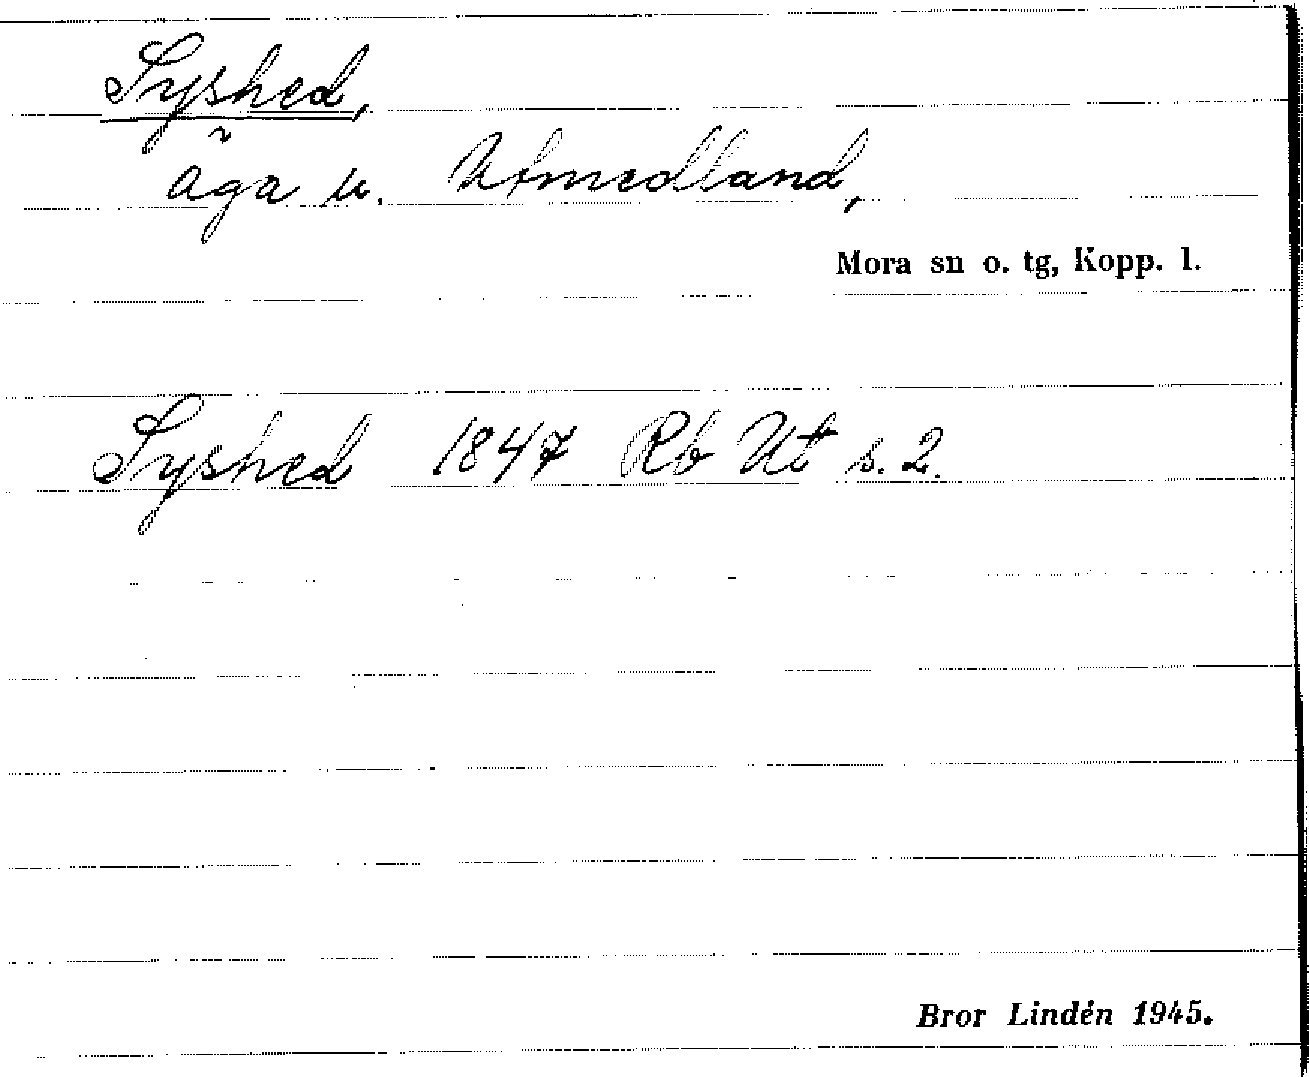 Syshed,
äga u. Utmedland,
Mora sn o. tg, Kopp. l.
Syshed 1847 Rb Ut s. 2.
Bror Lindén 1945.